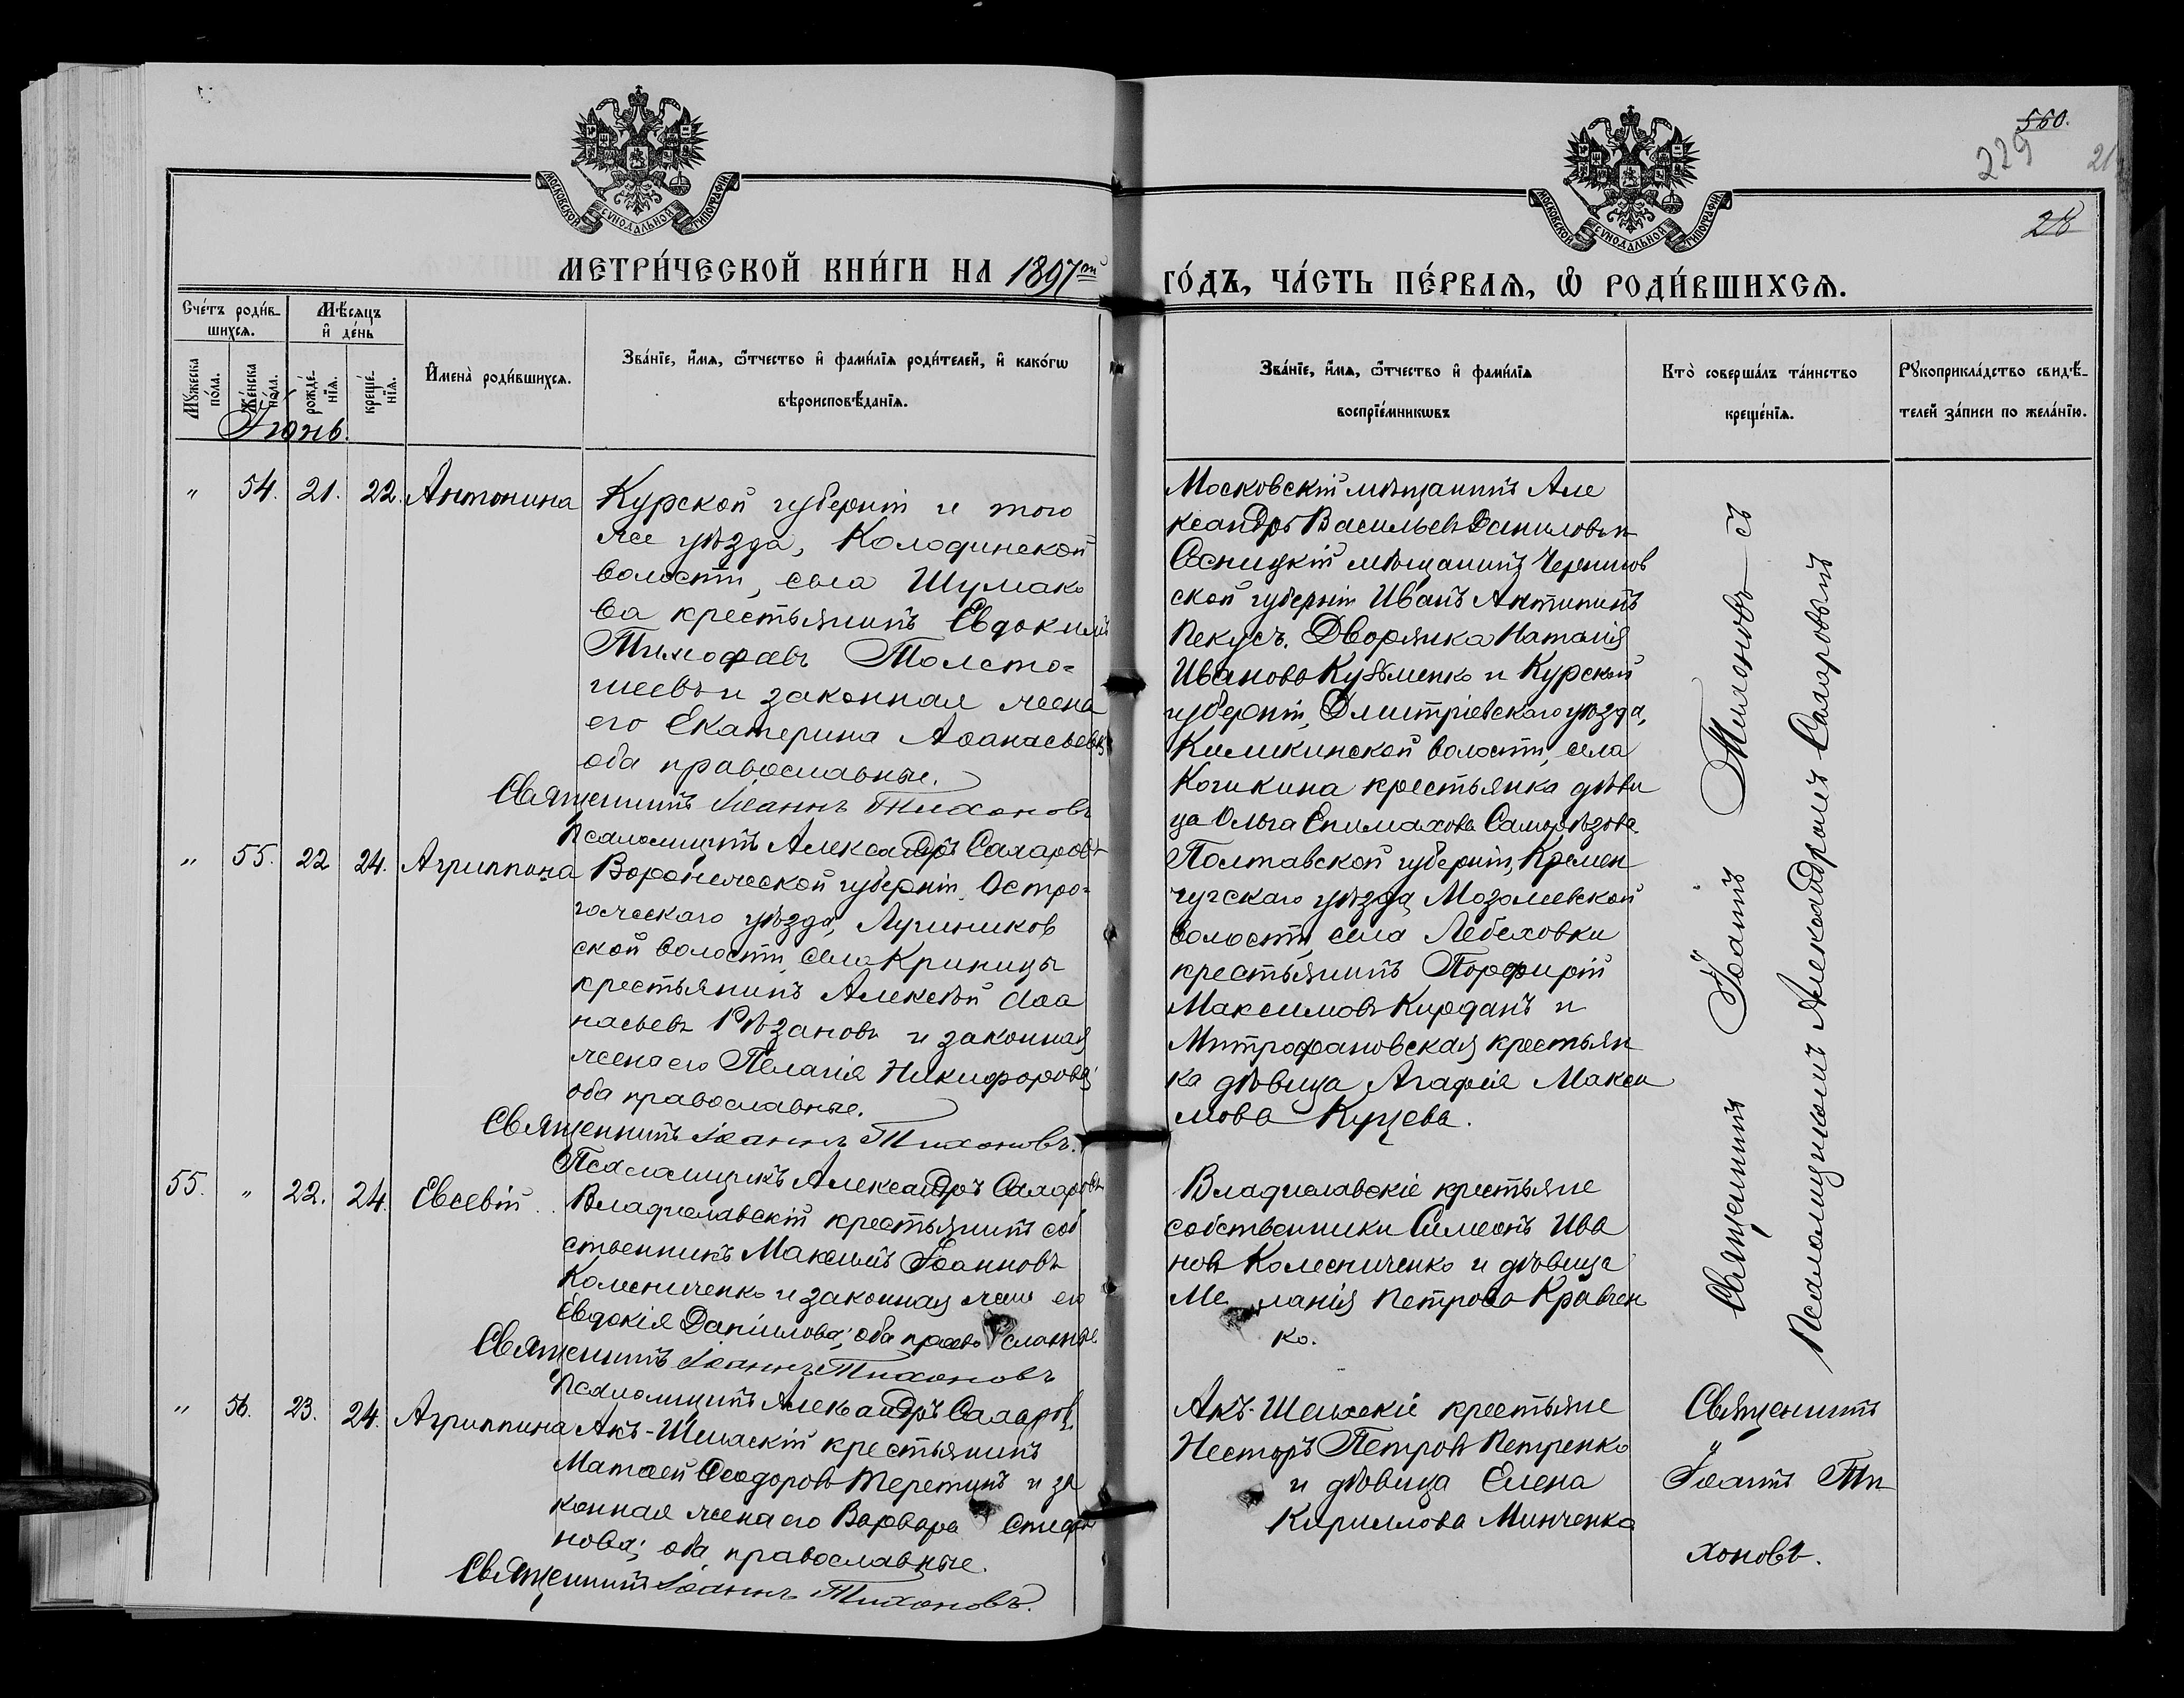 560.
229
21
28
МОСКОВСКОЙ СѴНОДАЛЬНОЙ ТИПОГРАФІИ
МОСКОВСКОЙ СѴНОДАЛЬНОЙ ТИПОГРАФІИ
МЕТРИ́ЧЕСКОЙ КНИ́ГИ НА 1897 ГО́ДЪ, ЧА́СТЬ ПЕ́РВАѦ, Ѽ РОДИ́ВШИХСѦ.
Сче́тъ роди́в-
шихсѧ.
Мꙋжеска по́ла.
Же́нска по́ла.
Мѣ́сѧцъ
и҆ де́нь
рожде́-
нїѧ.
креще́-
нїѧ.
И҆мена̀ роди́вшихсѧ.
Зва́нїе, и҆́мѧ, ѻ҆́тчество и҆ фами́лїѧ роди́телей, и҆ како́гѡ
вѣроисповѣ́данїѧ.
Зва́нїе, и҆́мѧ, ѻ҆́тчество и҆ фами́лїѧ
воспрїе́мникѡвъ
Кто̀ соверша́лъ та́инство
креще́нїѧ.
Рꙋкоприкла́дство свидѣ́-
телей за́писи по жела́нїю.
Іюнь.
" 54. 21. 22. Антонина
Курской губерніи и того
же уѣзда, Колодинской
волости, села Шумако
ва крестьянинъ Евдокимъ
Тимофеевъ Толсто-
шеевъ и законная жена
его Екатерина Аѳанасьева
оба православные.
Священникъ Іоаннъ Тихоновъ
Псаломщикъ Александръ Сахаровъ
Московскій мѣщанинъ Але
ксандръ Васильевъ Даниловъ и
Сосницкій мѣщанинъ Чернигов
ской губерніи Иванъ Антипинъ
Пекусъ. Дворянка Наталія
Иванова Кузьменко и Курской
губерніи, Дмитріевскаго уѣзда,
Киликинской волости, села
Когикина крестьянка дѣви
ца Ольга Епимахова Саморѣзова
" 55. 22 24. Агриппина
Воронежской губерніи, Остро-
гожскаго уѣзда, Лушников
ской волости, села Криницы
крестьянинъ Алексѣй Аѳа
насьевъ Рѣзановъ и законная
жена его Пелагія Никифорова;
оба православные.
Священникъ Іоаннъ Тихоновъ.
Псаломщикъ Александръ Сахаровъ
Полтавской губерніи, Кремен
чугскаго уѣзда, Мозолевской
волости, села Лебеховки
крестьянинъ Порфирій
Максимовъ Кирданъ и
Митрофановская крестьян
ка дѣвица Агафія Макси
мова Куцева.
55. " 22. 24. Евсевій
Владиславскій крестьянинъ соб
ственникъ Максимъ Іоанновъ
Колесниченко и законная жена его
Евдокія Даніилова; оба православные
Священникъ Іоаннъ Тихоновъ
Псаломщикъ Александръ Сахаровъ
Владиславскіе крестьяне
собственники Симеонъ Ива
новъ Колесниченко и дѣвица
Меланія Петрова Кравчен
ко.
" 56. 23. 24. Агриппина
Акъ-Шеихскій крестьянинъ
Матѳей Ѳеодоровъ Теретинъ и за
конная жена его Варвара Стефа
нова; оба православные.
Священникъ Іоаннъ Тихоновъ.
Акъ-Шеихскіе крестьяне
Несторъ Петровъ Петренко
и дѣвица Елена
Кириллова Минченко
Священникъ Іоаннъ Тихоновъ съ
Псаломщикомъ Александромъ Сахаровымъ
Священникъ
Іоаннъ Ти
хоновъ.